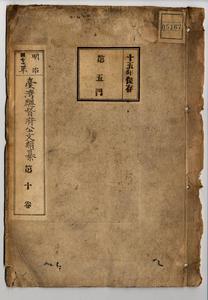 05167
十五年保存
第五門
明治
臺灣總督府公文類纂
第十卷